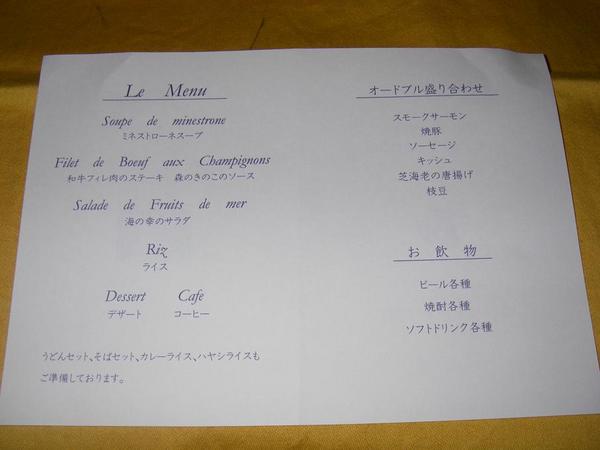 Le Menu
Soupe de minestrone
ミネストローネスープ
Filet de Boeuf aux Champignons
和牛フィレ肉のステーキ 森のきのこのソース
Salade de Fruits de mer
海の幸のサラダ
Riz
ライス
Dessert Cafe
デザート コーヒー
うどんセット、そばセット、カレーライス、ハヤシライスも
ご準備しております。
オードブル盛り合わせ
スモークサーモン
焼豚
ソーセージ
キッシュ
芝海老の唐揚げ
枝豆
お飲物
ビール各種
焼酎各種
ソフトドリンク各種